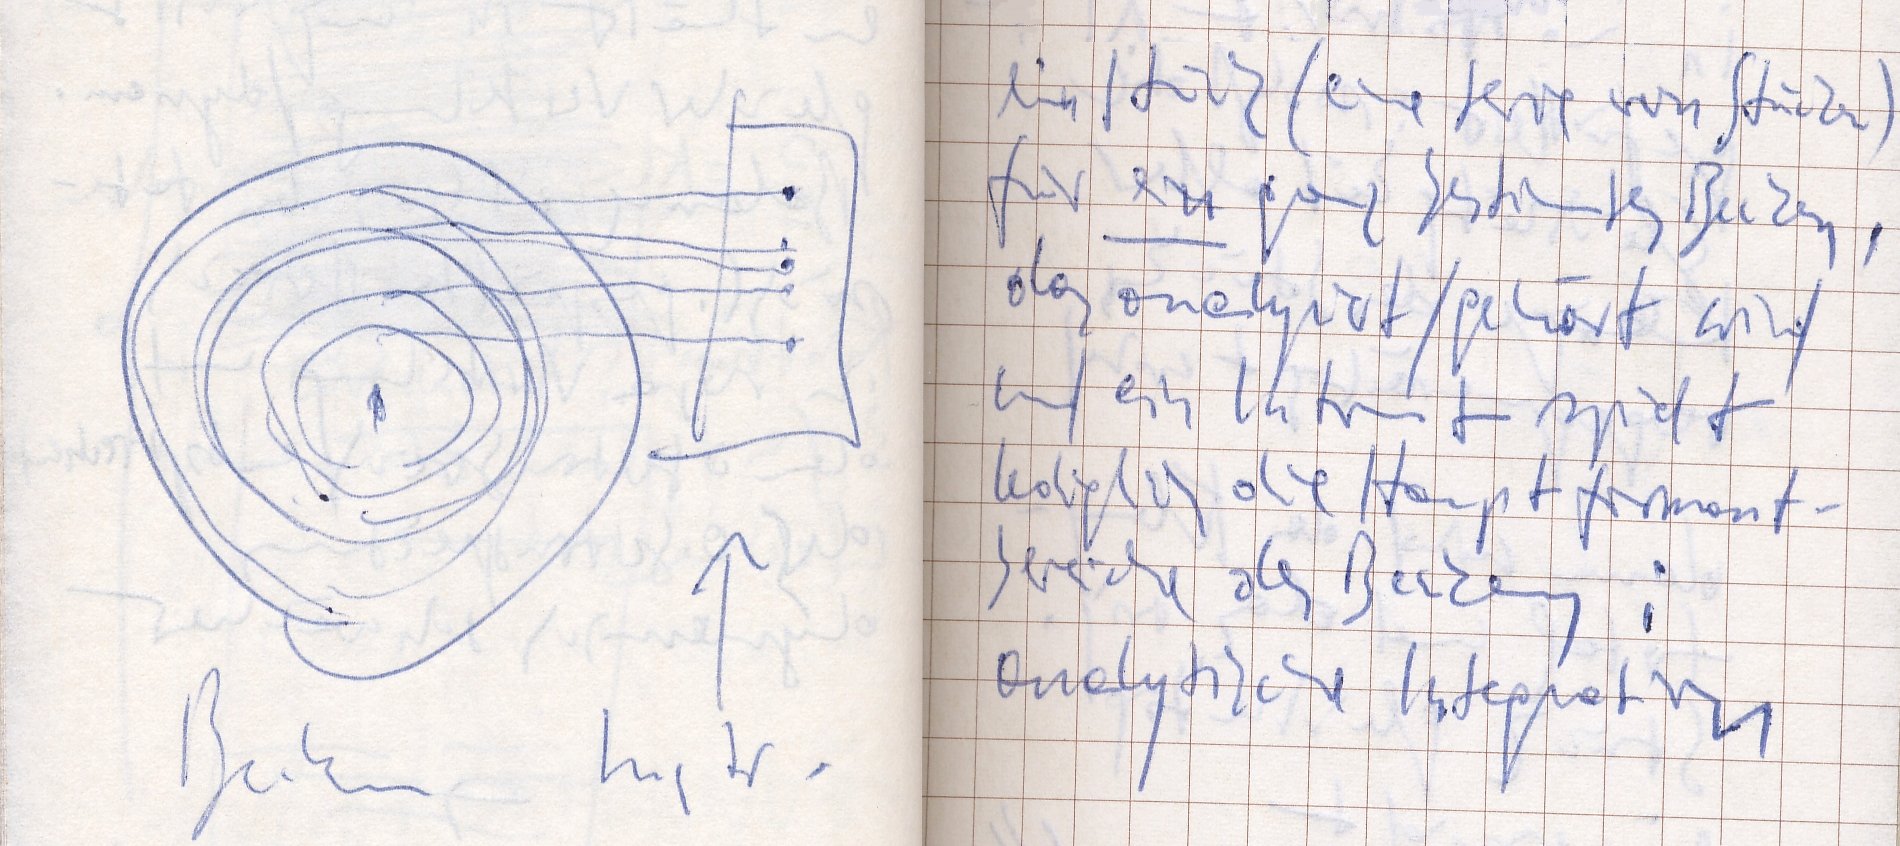 Becken Instr.
ein Stück (eine Serie von Stücken)
für ein ganz bestimmtes Becken,
das analysiert/gehört wird
und ein Instrument spielt
lediglich die Hauptformant-
bereiche des Beckens;
analytische Integration